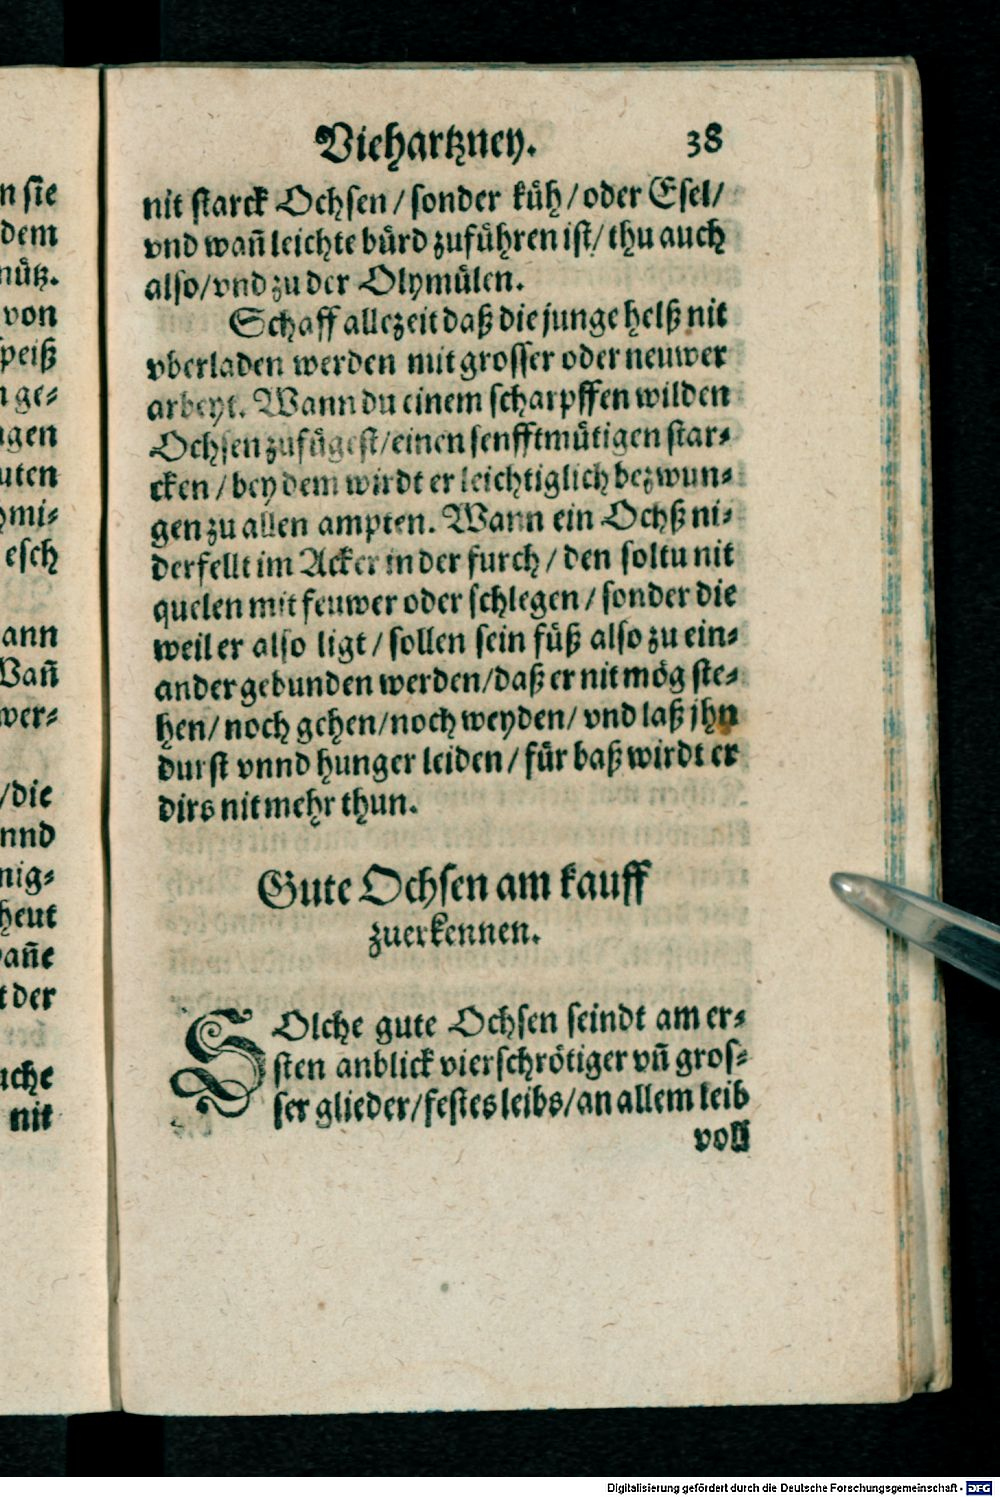 n sie
dem
nütz.
von
speiß
n ge⸗
ngen
uten
hmi⸗
esch
ann
Wañ
wer⸗
/die
nnd
nig⸗
heut
wañe
t der
uche
nit
Viehartzney. 38
nit starck Ochsen/sonder küh/oder Esel/
vnd wañ leichte bürd zuführen ist/ thu auch
also/vnd zu der Olymülen.
Schaff allezeit daß die junge helß nit
vberladen werden mit grosser oder neuwer
arbeyt. Wann du einem scharpffen wilden
Ochsen zufügest/einen senfftmütigen star⸗
cken/bey dem wirdt er leichtiglich bezwun⸗
gen zu allen ampten. Wann ein Ochß ni⸗
derfellt im Acker in der furch/ den soltu nit
quelen mit feuwer oder schlegen/ sonder die
weil er also ligt/ sollen sein füß also zu ein⸗
ander gebunden werden/daß er nit mög ste⸗
hen/ noch gehen/noch weyden/ vnd laß jhn
durst vnnd hunger leiden/ für baß wirdt er
dirs nit mehr thun.
Gute Ochsen am kauff
zuerkennen.
SOlche gute Ochsen seindt am er⸗
sten anblick vierschrötiger vñ gros⸗
ser glieder/festes leibs/an allem leib
voll
Digitalisierung gefördert durch die Deutsche Forschungsgemeinschaft - DFG